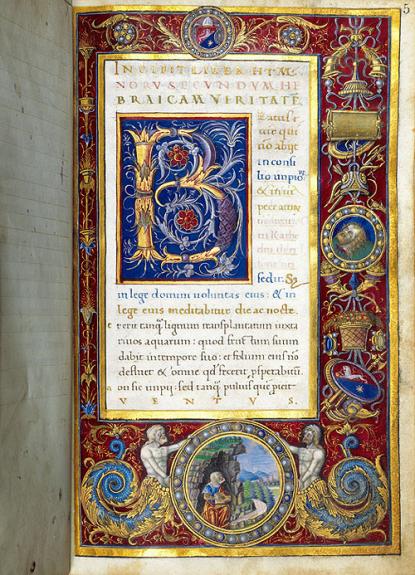 5
INCIPIT LIBER HYM
NORV SECVNDVM HE
BRAICAM VIRITATĒ
Beatus
vir qui
nō abijt
in consi
lio impio
& in via
peccatorum
sedit. Sȝ
in lege domini uoluntas eius: & in
lege eius meditabitur die ac nocte.
erit tanq̃ lignum transplantatum iuxta
riuos aquarum: quod fructum suum
dabit in tempore suo: et folium eius nō
defluet & omne qd fecerit, prosperabitur
on sic impij: sed tanq̃ puluis quē proicit
VENTVS.